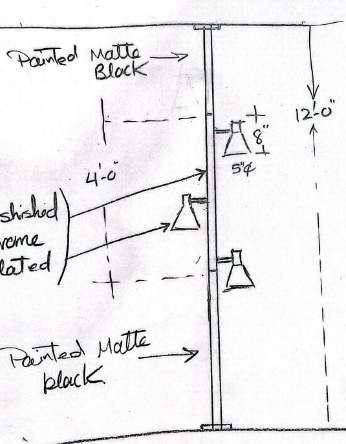 Painted Matte
Black
12'-0"
8"
5"¢
4'-0"
shished
rome
lated
Painted Matte
black